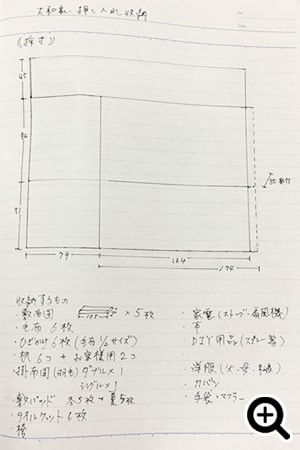 大和家・押し入れ収納
《採寸》
45
94
71
79
164
174
収納するもの
・敷布団 105 × 5枚
・毛布 6枚
・ひざかけ 6枚(毛布 1/2サイズ)
・枕 6コ + お客様用 2コ
・掛布団(羽毛) ダブル×1
シングル×1
・敷パッド 冬5枚 + 夏5枚
・タオルケット 6枚
・家電(ストーブ・扇風機)
・布
・DIY用品(スプレー等)
・洋服
・カバン
・手袋・マフラー